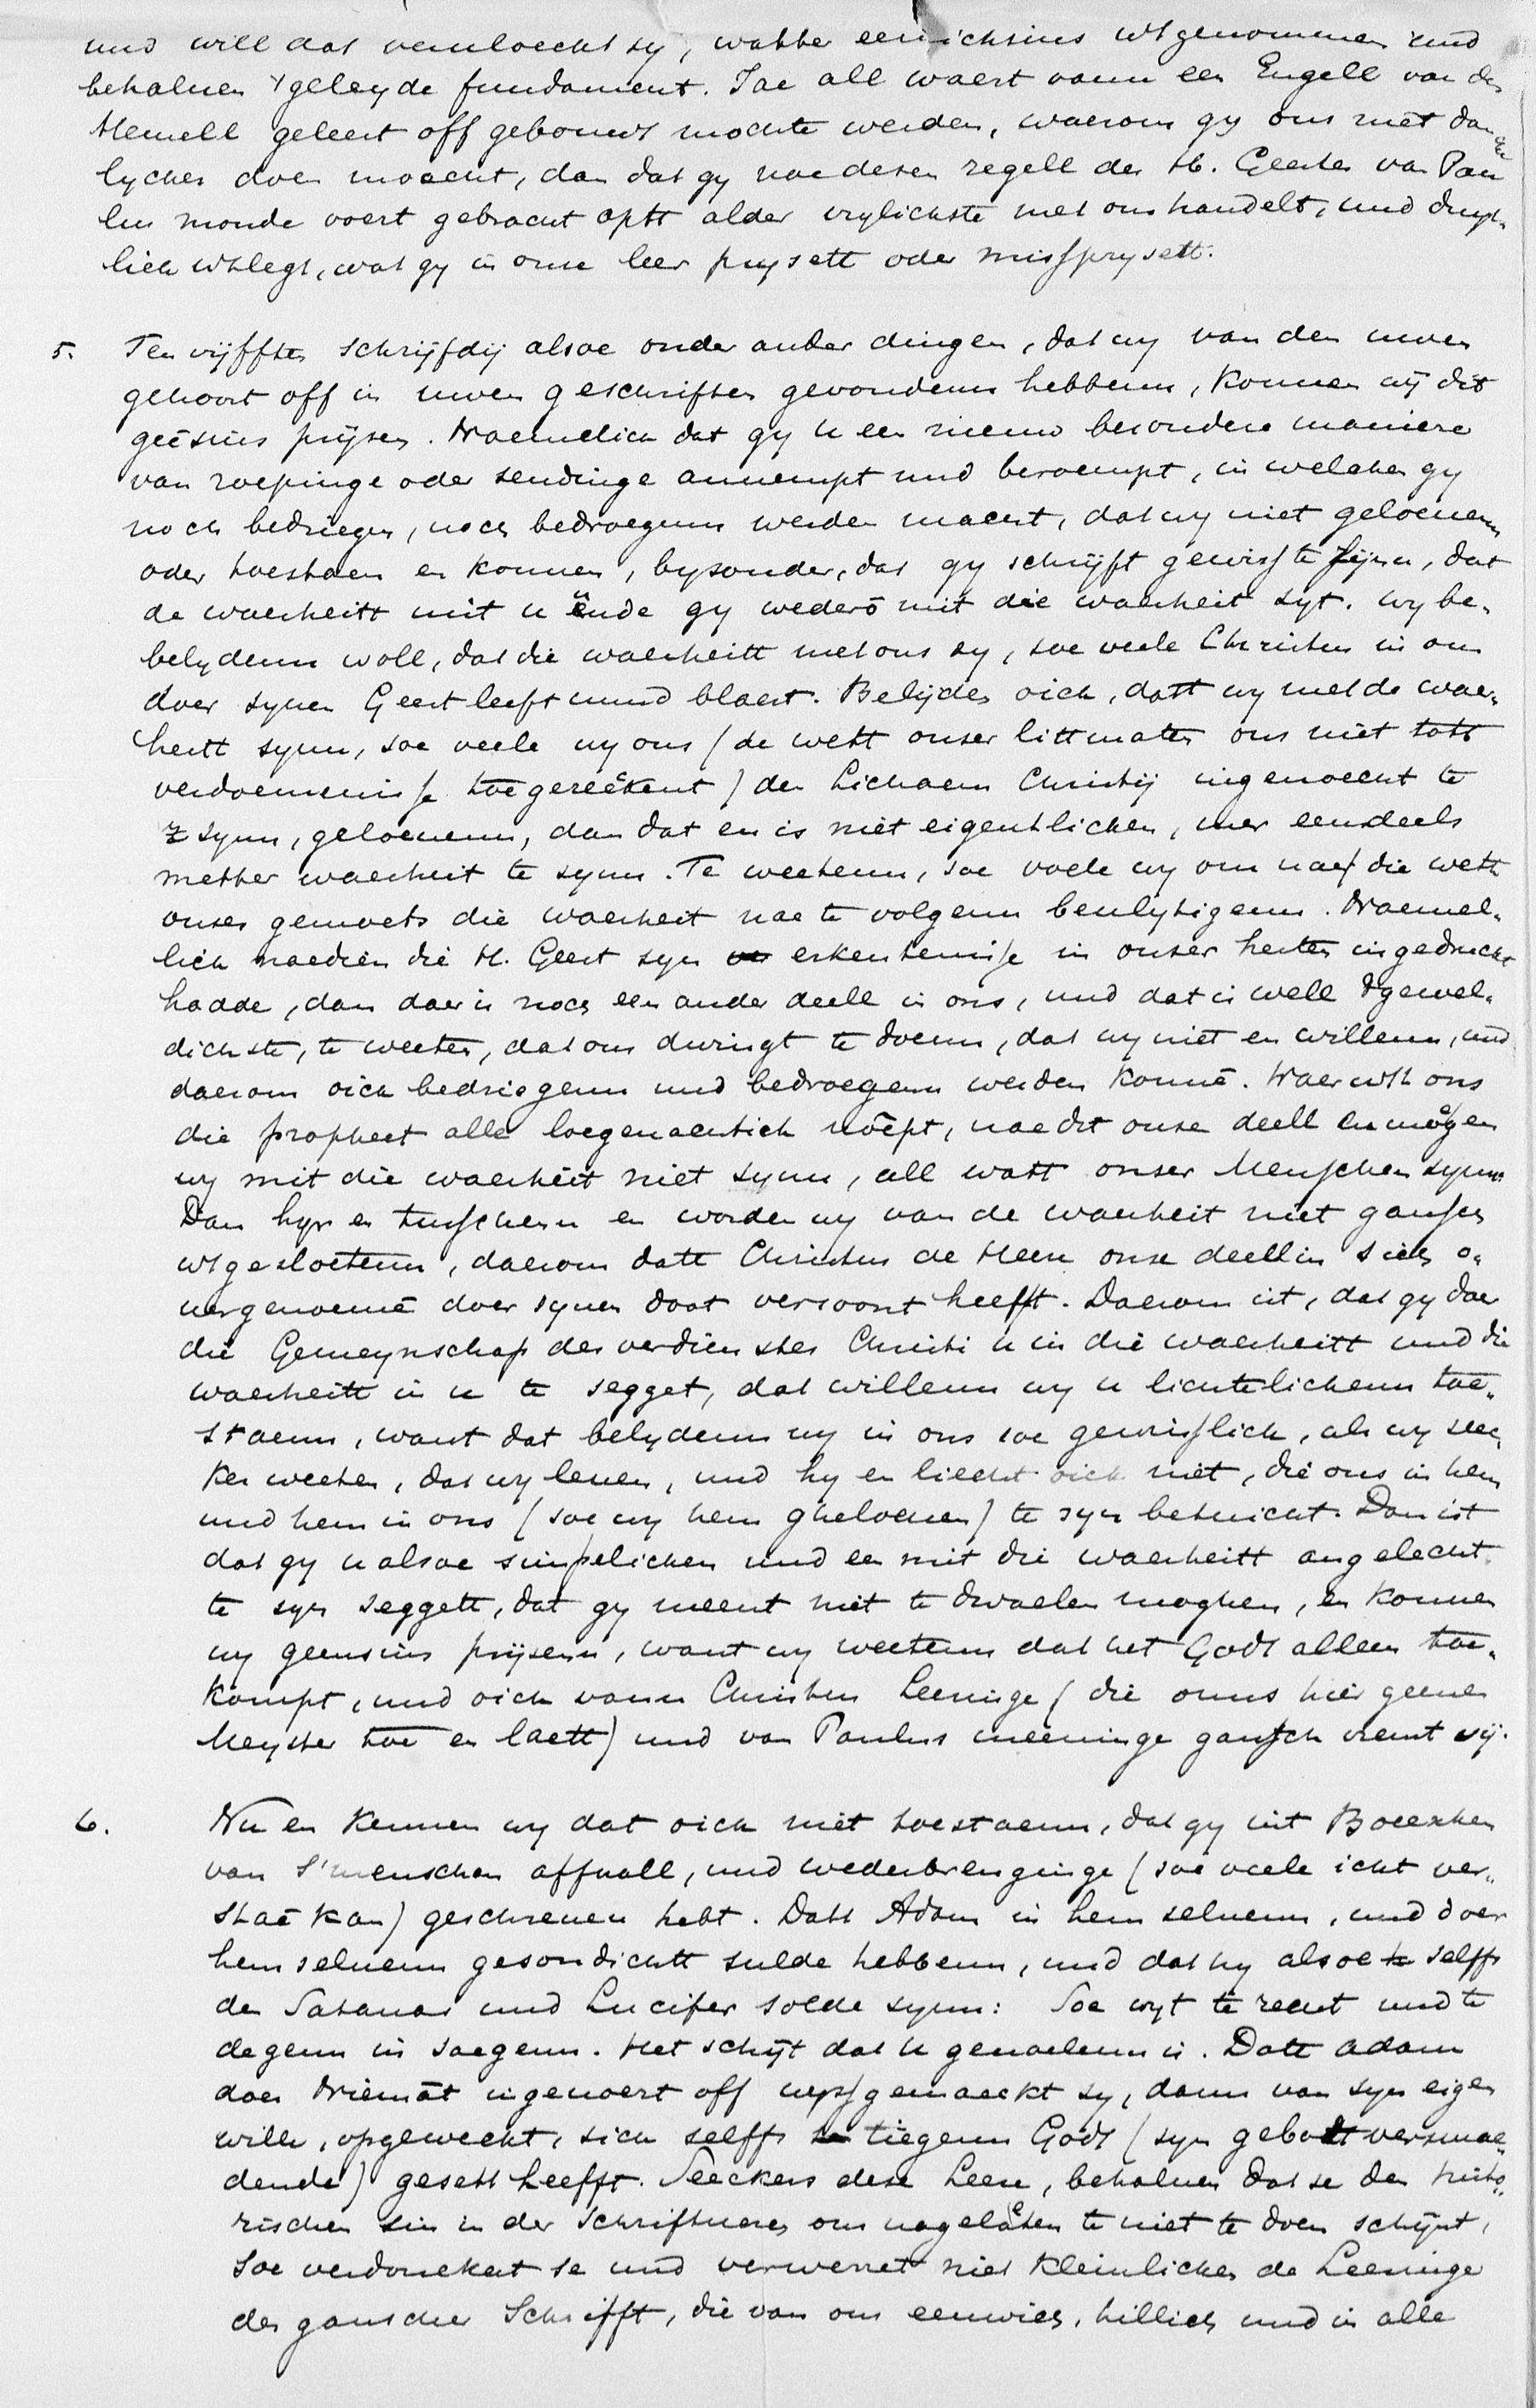 und will dat veruloeckt sy, watter eenichsins wtgenommen und
behaluen tgeleyde fundament. Jae all waert vann een Engell van den
Hemell geleert off gebouwt mochte werden, waerom gy ons niet danck
lycker doen moecht, dan dat gy nae desen regell des H. Geestes van Pau
lus monde voert gebracht optt alder vrylichste met ons handelt, und duyt-
lich wtlegt, wat gy in onse leer prysett oder missprysett.
5. Ten vijfften schrijfdij alsoe onder ander dingen, dat wy van den uwen
gehoort off in uwen geschriften gevondenn hebbenn, konnen wij dit
geēsins prijsen. Naemelick dat gy u een nieuw besondere maniere
van roepinge oder sendinge annempt und beroempt, in welcher gy
noch bedriegen, noch bedroegenn werden moecht, dat wy niet geloeuenn
oder toestaen en konnen, bysonder, dat gy schrijft gewiss te sijnn, dat
de waerheitt mit u ende gy wederō mit die waerheit syt. wy be-
belydenn woll, dat die waerheitt met ons sy, soe veele Christus in ons
doer synen Geest leeft unnd blaest. Belijden oick, datt wy met de waer-
heitt synn, soe veele wy ons (de wett onser littmaten ons niet tott
verdoemenisse toegereēkent) den Lichaem Christij ingenoecht te
synn, geloeuenn, dan dat en is niet eigentlicken, mer eensdeels
metter waerheit te synn. Te weetenn, soe veele wy ons naeʃ die wett
onses gemoets die waerheit nae te volgenn benlytigenn. Naemel-
lich naedien die H. Geest syn erkentenisse in onser herten ingedruckt
hadde, dan daer is noch een ander deell in ons, und dat is well dgewel-
dichste, te weeten, dat ons dwingt te doenn, dat wy niet en willenn, und
daerom oick bedriegenn und bedroegenn werden konnē. Waer wth ons
die propheet alle loegenachtich noēpt, nae dit onse deell en mogen
wy mit die waerheit niet synn, all watt onser Menschen synn.
Dan hyr en tusschenn en worden wy van de waerheit niet gansses
wtgeslotenn, daerom datt Christus de Heere onse deell in sich o-
uergenoemē doer synen doot versoont heefft. Daerom ist, dat gy doer
die Gemeynschap der verdiensten Christi u in die waerheitt und die
waerheitt in u te segget, dat willenn wy u lichtelickenn toe-
staenn, want dat belydenn wy in ons soe gewisslick, als wy seec
ker weeten, dat wy leuen, und hy en liecht oick niet, die ons in hem
und hem in ons (soe wy hem gheloeuen) te syn betuicht. Dan ist
dat gy u alsoe simpelicken und een mit die waerheitt angelecht
te syn seggett, dat gy meent niet te dwaelen moghen, en konnen
wy geensins prijsenn, want wy weetenn dat het Godt alleen toe-
kompt, und oick vann Christus Leeringe (die onns hier geenen
Meyster toe en laett) und van Paulus meeninge gansch vremt sij.
6. Nu en kennen wy dat oick niet toestaenn, dat gy int Boecxken
van s'menschen affuall, und wederbrenginge (soe veele ickt ver-
staē kan) geschreuen hebt. Datt Adam in hem seluenn, und doer
hem seluenn gesondichtt sulde hebbenn, und dat hy alsoe selffs
de Satanas und Lucifer solde synn: Soe wyt te recht und te
degenn in saegenn. Het schijt dat u genoelenn is. Datt adam
doer Niemāt ingenoert off wyssgemaeckt sy, dann van syn eigen
wille, opgeweckt, sich selffs tiegenn Godt (syn gebott versmae-
dende) gesett heefft. Seeckers dese Leere, behaluen dat se den histo-
rischen sin in der Schriftueren ons nagelaeten te niet te doen schijnt,
soe verdonckert se und verwerret niet kleinlicken de Leeringe
der ganscher Schrifft, die van ons eenwich, hillich und in alle